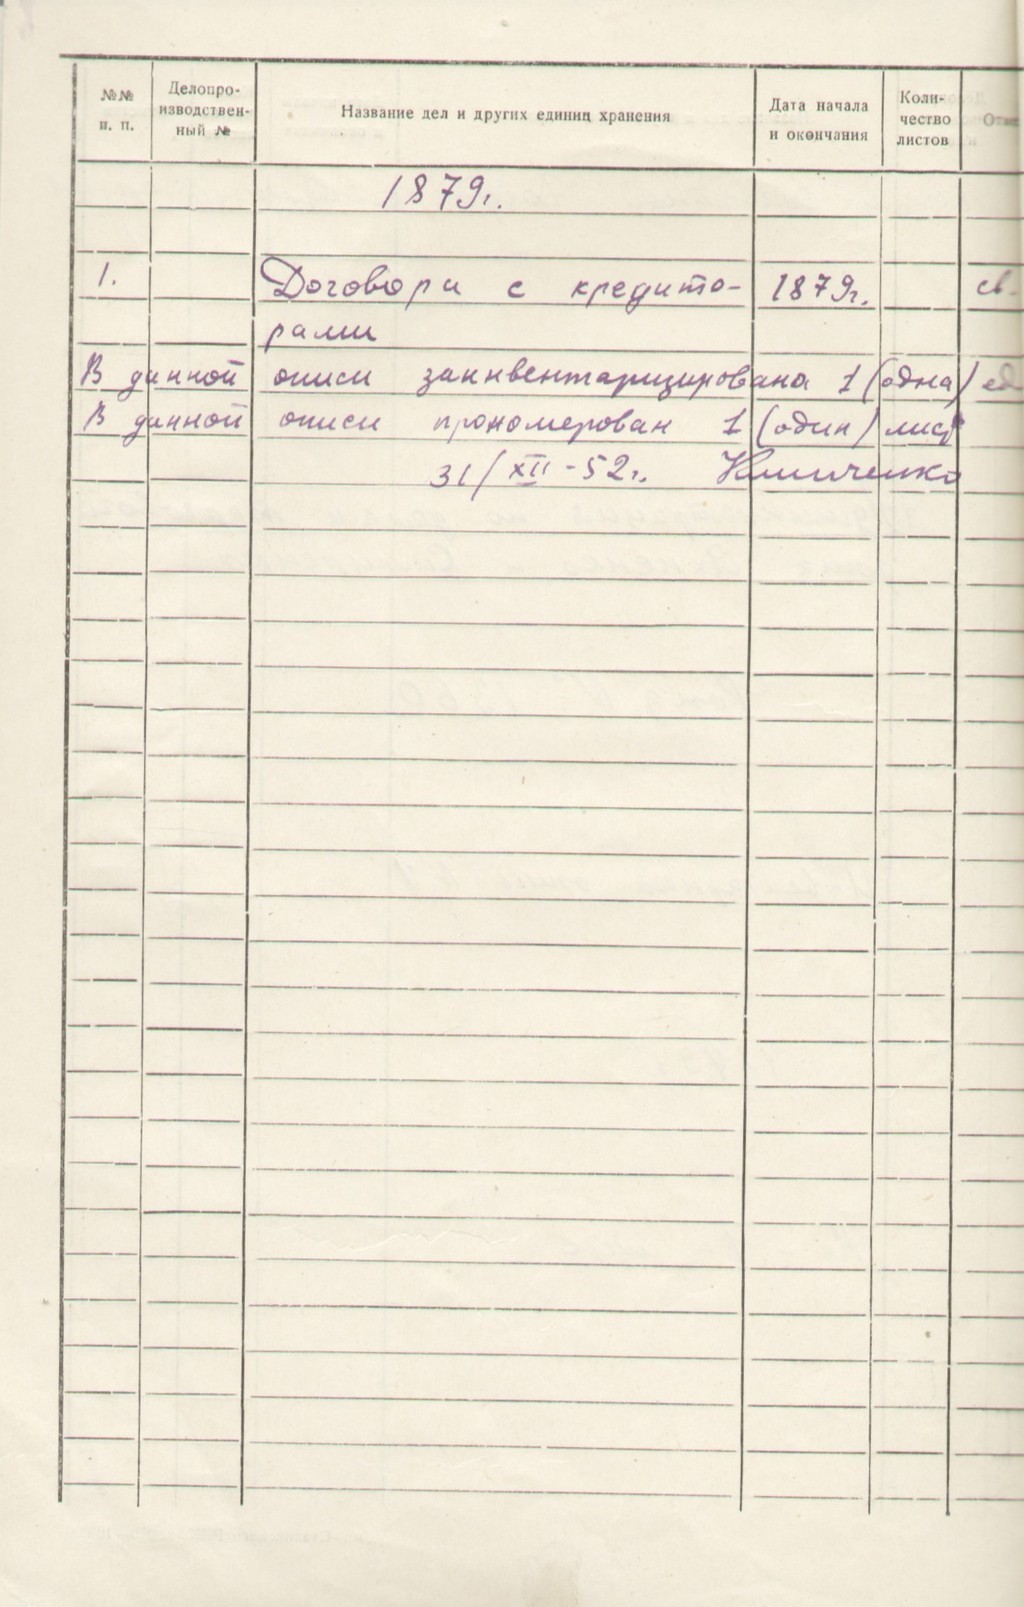 №№ п. п.
Делопро-
изводствен-
ный №
Название дел и других единиц хранения
Дата начала
и окончания
Коли-
чество
листов
1879г.
1. Договора с кредито- 1879г. св.
рами
В данной описи заинвентаризирована 1 (одна) ед
В данной описи прономерован 1 (один) лист
31/XII-52г.